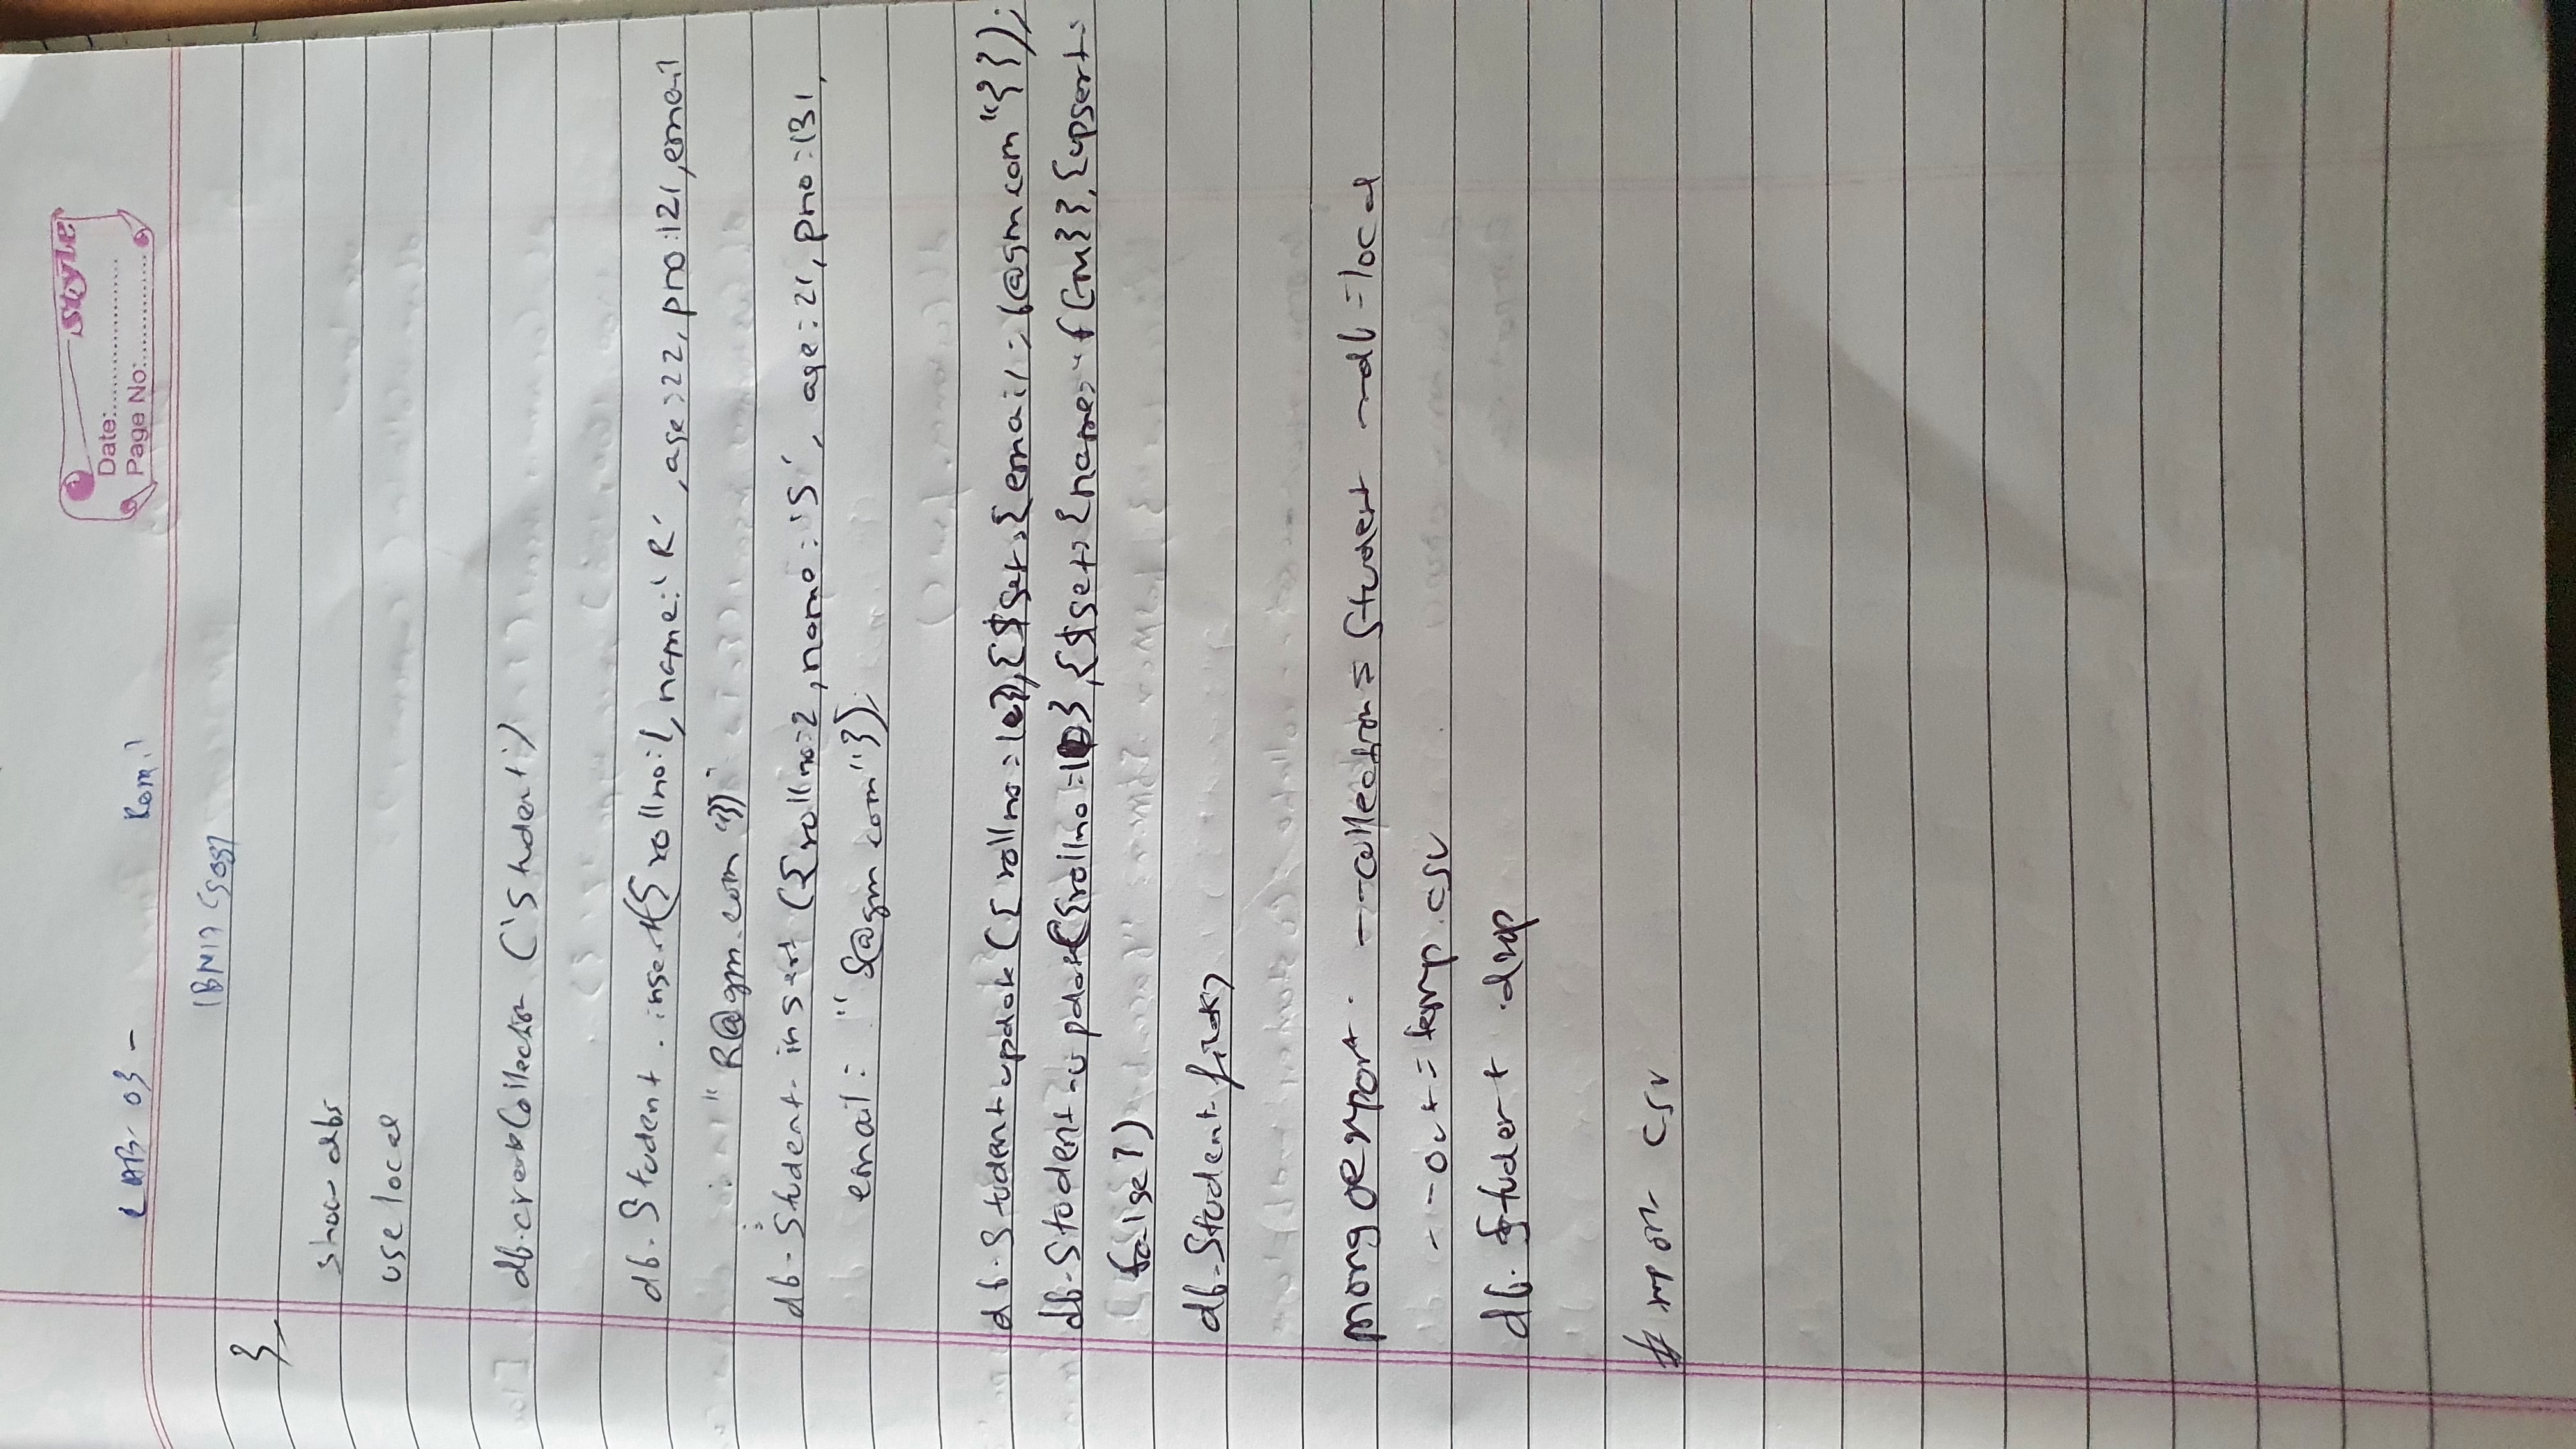 Style
Date:
Page No:
LAB- 03 -
3
show dbs
use local
db.createCollection ('Student')
db. Student . insert({rollno:1, name:'R' , age:22, pno:121, email
: "R@gm.com"})
db. Student. insert ({rollno:2, name: 'S', age: 21, pno:131,
email: "S@gm com"});
db. Student update ({ rollno: {$set:{email: @gm com"}});
db. Student . update({rollno: }, {$set: {name: }}, {upsert:
false})
db. Student find()
mongoexport --collection= Student --db=local
--out= temp.csv
db. Student .drop
import csv